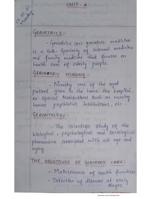 UNIT - 
GERIATRICS :-
Geriatrics (or) geriatric medicine
is a sub-speciality of internal medicine
and family medicine that focuses on
health care of elderly people.
GERIATRIC NURSING :-
Nursing care of the aged
patient given in the home, the hospital
or special institutions such as nursing
homes, psychiatric institutions, etc
GERONTOLOGY :-
The scientific study of the
biological, psychological and sociological
phenomena associated with old age and
aging
THE OBJECTIVES OF GERIATRIC CARE :-
- Maintenance of health function
- Detection of disease at early
stages